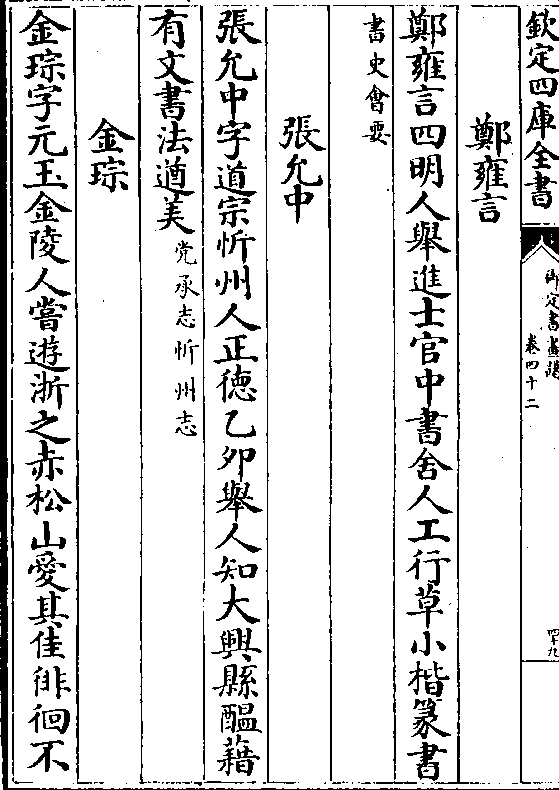 欽定四庫全書
御定書畫譜
卷四十二
四十九
鄭雍言
鄭雍言四明人舉進士官中書舍人工行草小楷篆書
書史會要
張允中
張允中字道宗忻州人正德乙夘舉人知大興縣醖藉
有文書法遒美党承志忻州志
金琮
金琮字元玉金陵人嘗遊浙之赤松山愛其佳徘徊不